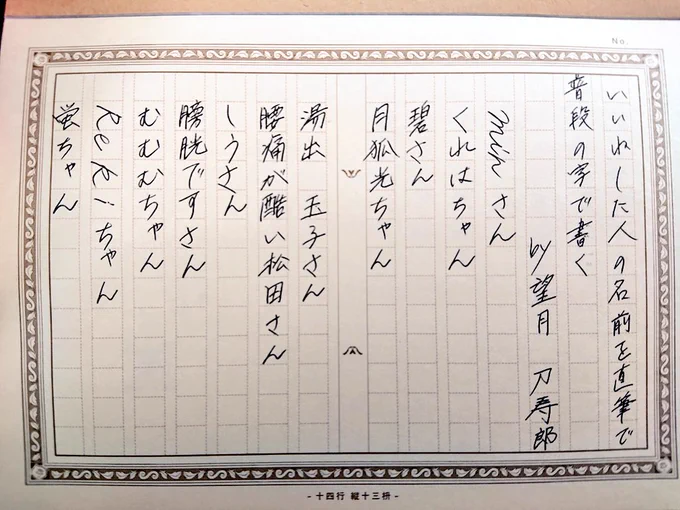 No.
いいねした人の名前を直筆で
普段の字で書く
by望月 刀寿郎
mihさん
くれはちゃん
碧さん
月狐光ちゃん
湯出 玉子さん
腰痛が酷い松田さん
しうさん
膀胱ですさん
むむむちゃん
ReRiちゃん
蛍ちゃん
-十四行 縦十三桝-